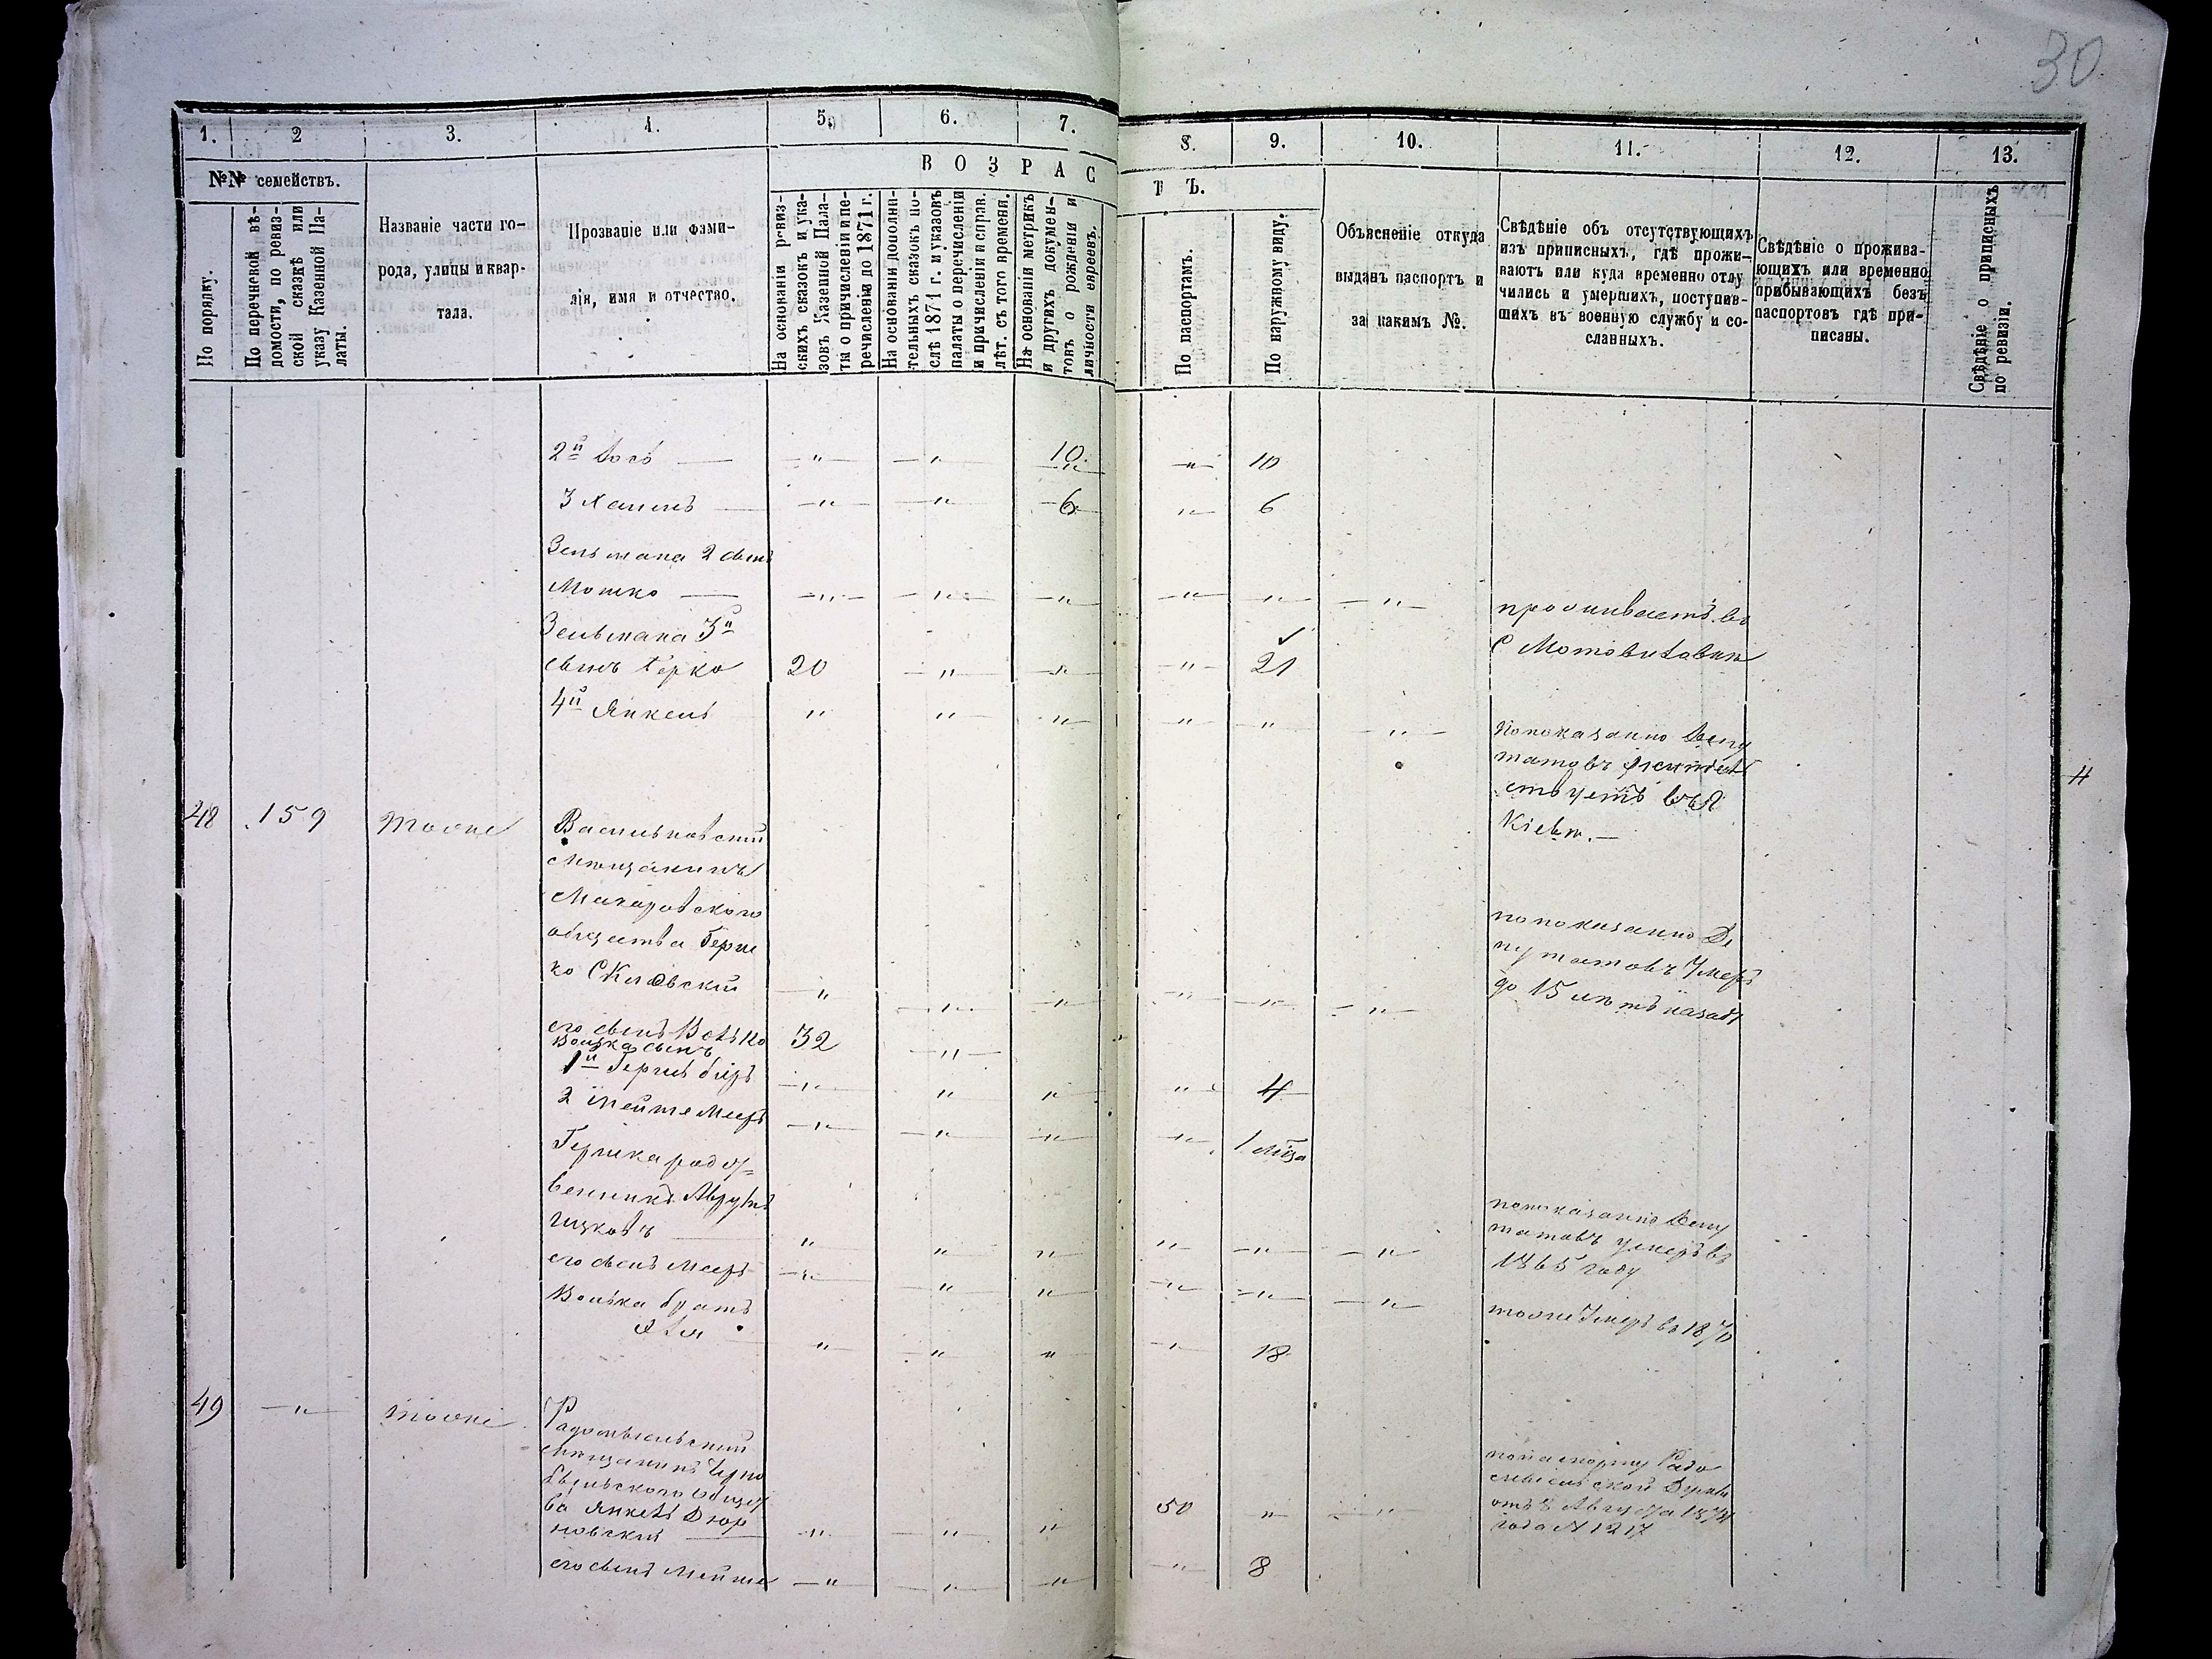 30
1. 2 3. 4. 5. 6. 7. 8. 9. 10. 11. 12. 13.
№№ семействъ.
По порядку.
По перечневой вѣ-
домости, по ревиз-
ской сказкѣ или
указу Казенной Па-
латы.
Названіе части го-
рода, улицы и квар-
тала.
Прозваніе или фами-
лія, имя и отчество.
ВОЗРАСТЪ.
На основаніи ревиз-
скихъ сказокъ и ука-
зовъ Казенной Пала-
ты о причисленіи и пе-
речисленіи до 1871 г.
На основаніи дополни-
тельныхъ сказокъ по-
слѣ 1871 г. и указовъ
палаты о перечисленіи
и причисленіи и справ.
лѣт. съ того времени.
На основаніи метрикъ
и другихъ докумен-
товъ о рожденіи и
личности евреевъ.
По паспортамъ.
По наружному виду.
Объясненіе откуда
выданъ паспортъ и
за какимъ №.
Свѣдѣніе объ отсутствующихъ
изъ приписныхъ, гдѣ прожи-
ваютъ или куда временно отлу
чились и умершихъ, поступив-
шихъ въ военную службу и со-
сланныхъ.
Свѣдѣніе о прожива-
ющихъ или временно
прибывающихъ безъ
паспортовъ гдѣ при-
писаны.
Свѣдѣніе о приписныхъ
по ревизіи.
2й Іось — " " 10 " 10
3 Хаимъ " " 6 " 6
Зельмана 2 сынъ
Мошко — " " " " " "
проживаетъ въ
С Мотовиловки
Зельмана 3й
сынъ Берко 20 " " " 21
4й Янкель " " " " " "
по показанію Депу
татовъ
ствуетъ въ
Кіевѣ. —
48 159 тоже Васильковскій
мѣщанинъ
Макаровскаго
общества Герш
ко " " " " " "
по показанію Де
путатовъ Умеръ
до 15 лѣтъ назадъ
его сынъ Волько 32 "
Волька сынъ
1й Герш Беръ " " " " 4
2 Мейше Меер " " " "
Гершка родст-
венникъ Аврумъ
Ицковъ " " " " " "
по показанію Депу
татовъ умеръ въ
1865 году
его сынъ Меер " " " " " "
тоже Умеръ въ 1870
Волька братъ
" " " " 18
49 " тоже Радомысльскій
мѣщанинъ Черно
быльского Общест
ва Янкель Дюр
новскій " " " 50 " "
по паспорту Радо
мысльской Думы
отъ 8 Августа 1874
года № 1217
его сынъ Мейше " " " " 8